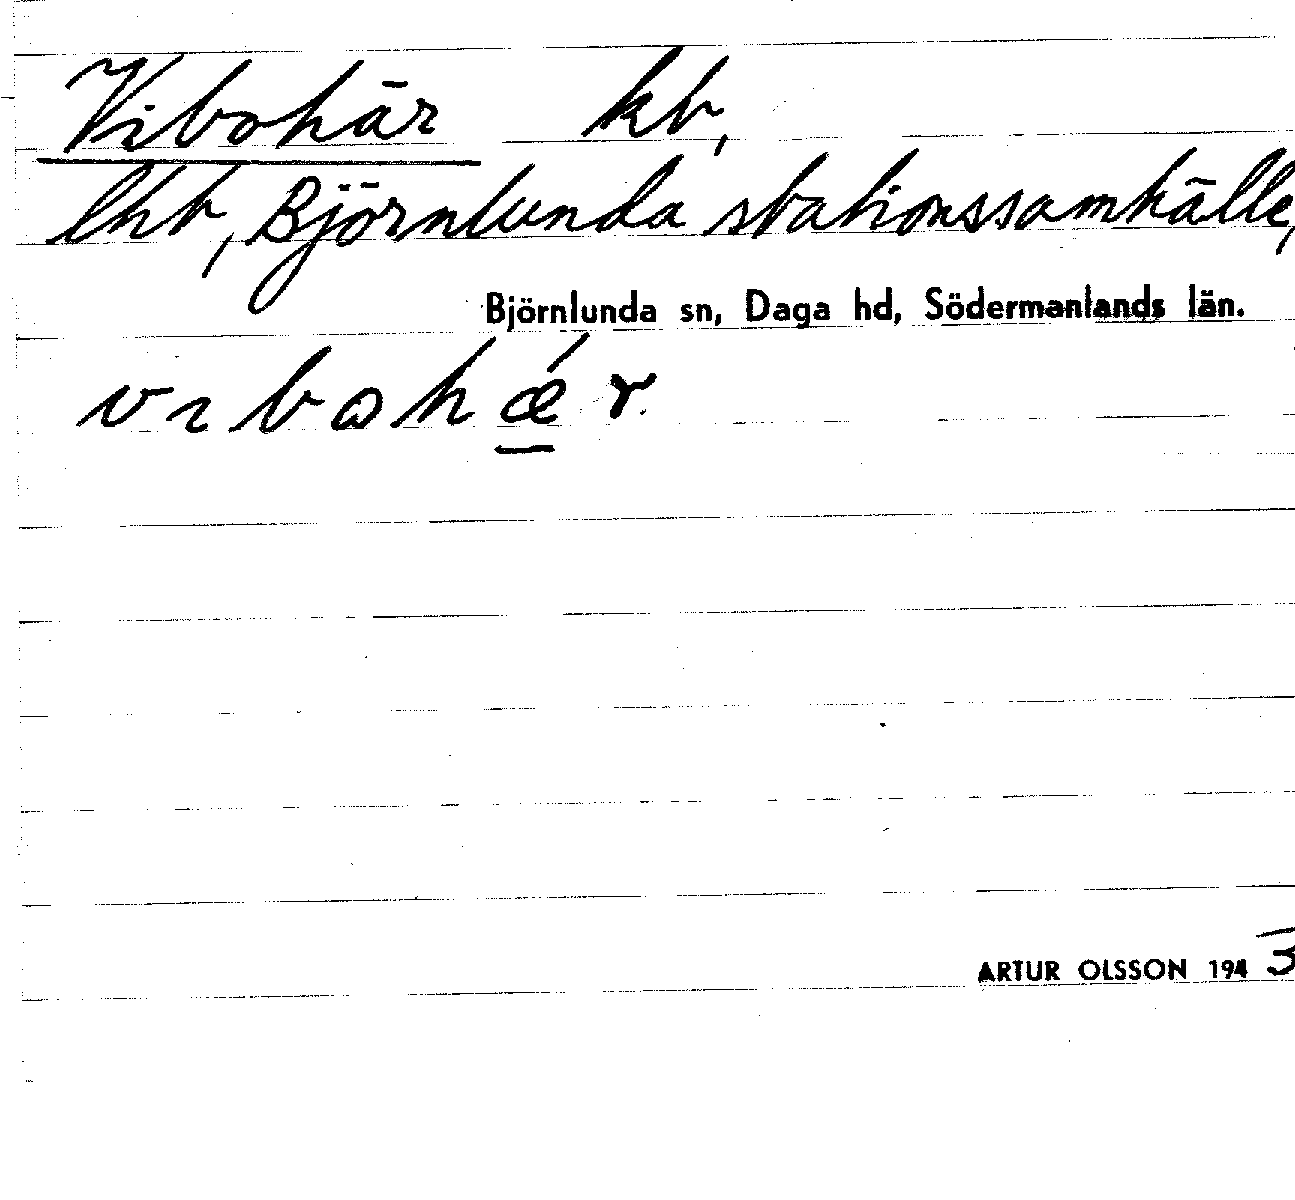 Vibohär kb,
lht, Björnlunda stationssamhälle,
Björnlunda sn, Daga hd, Södermanlands län.
vɩbɷhǽr.
ARTUR OLSSON 1945